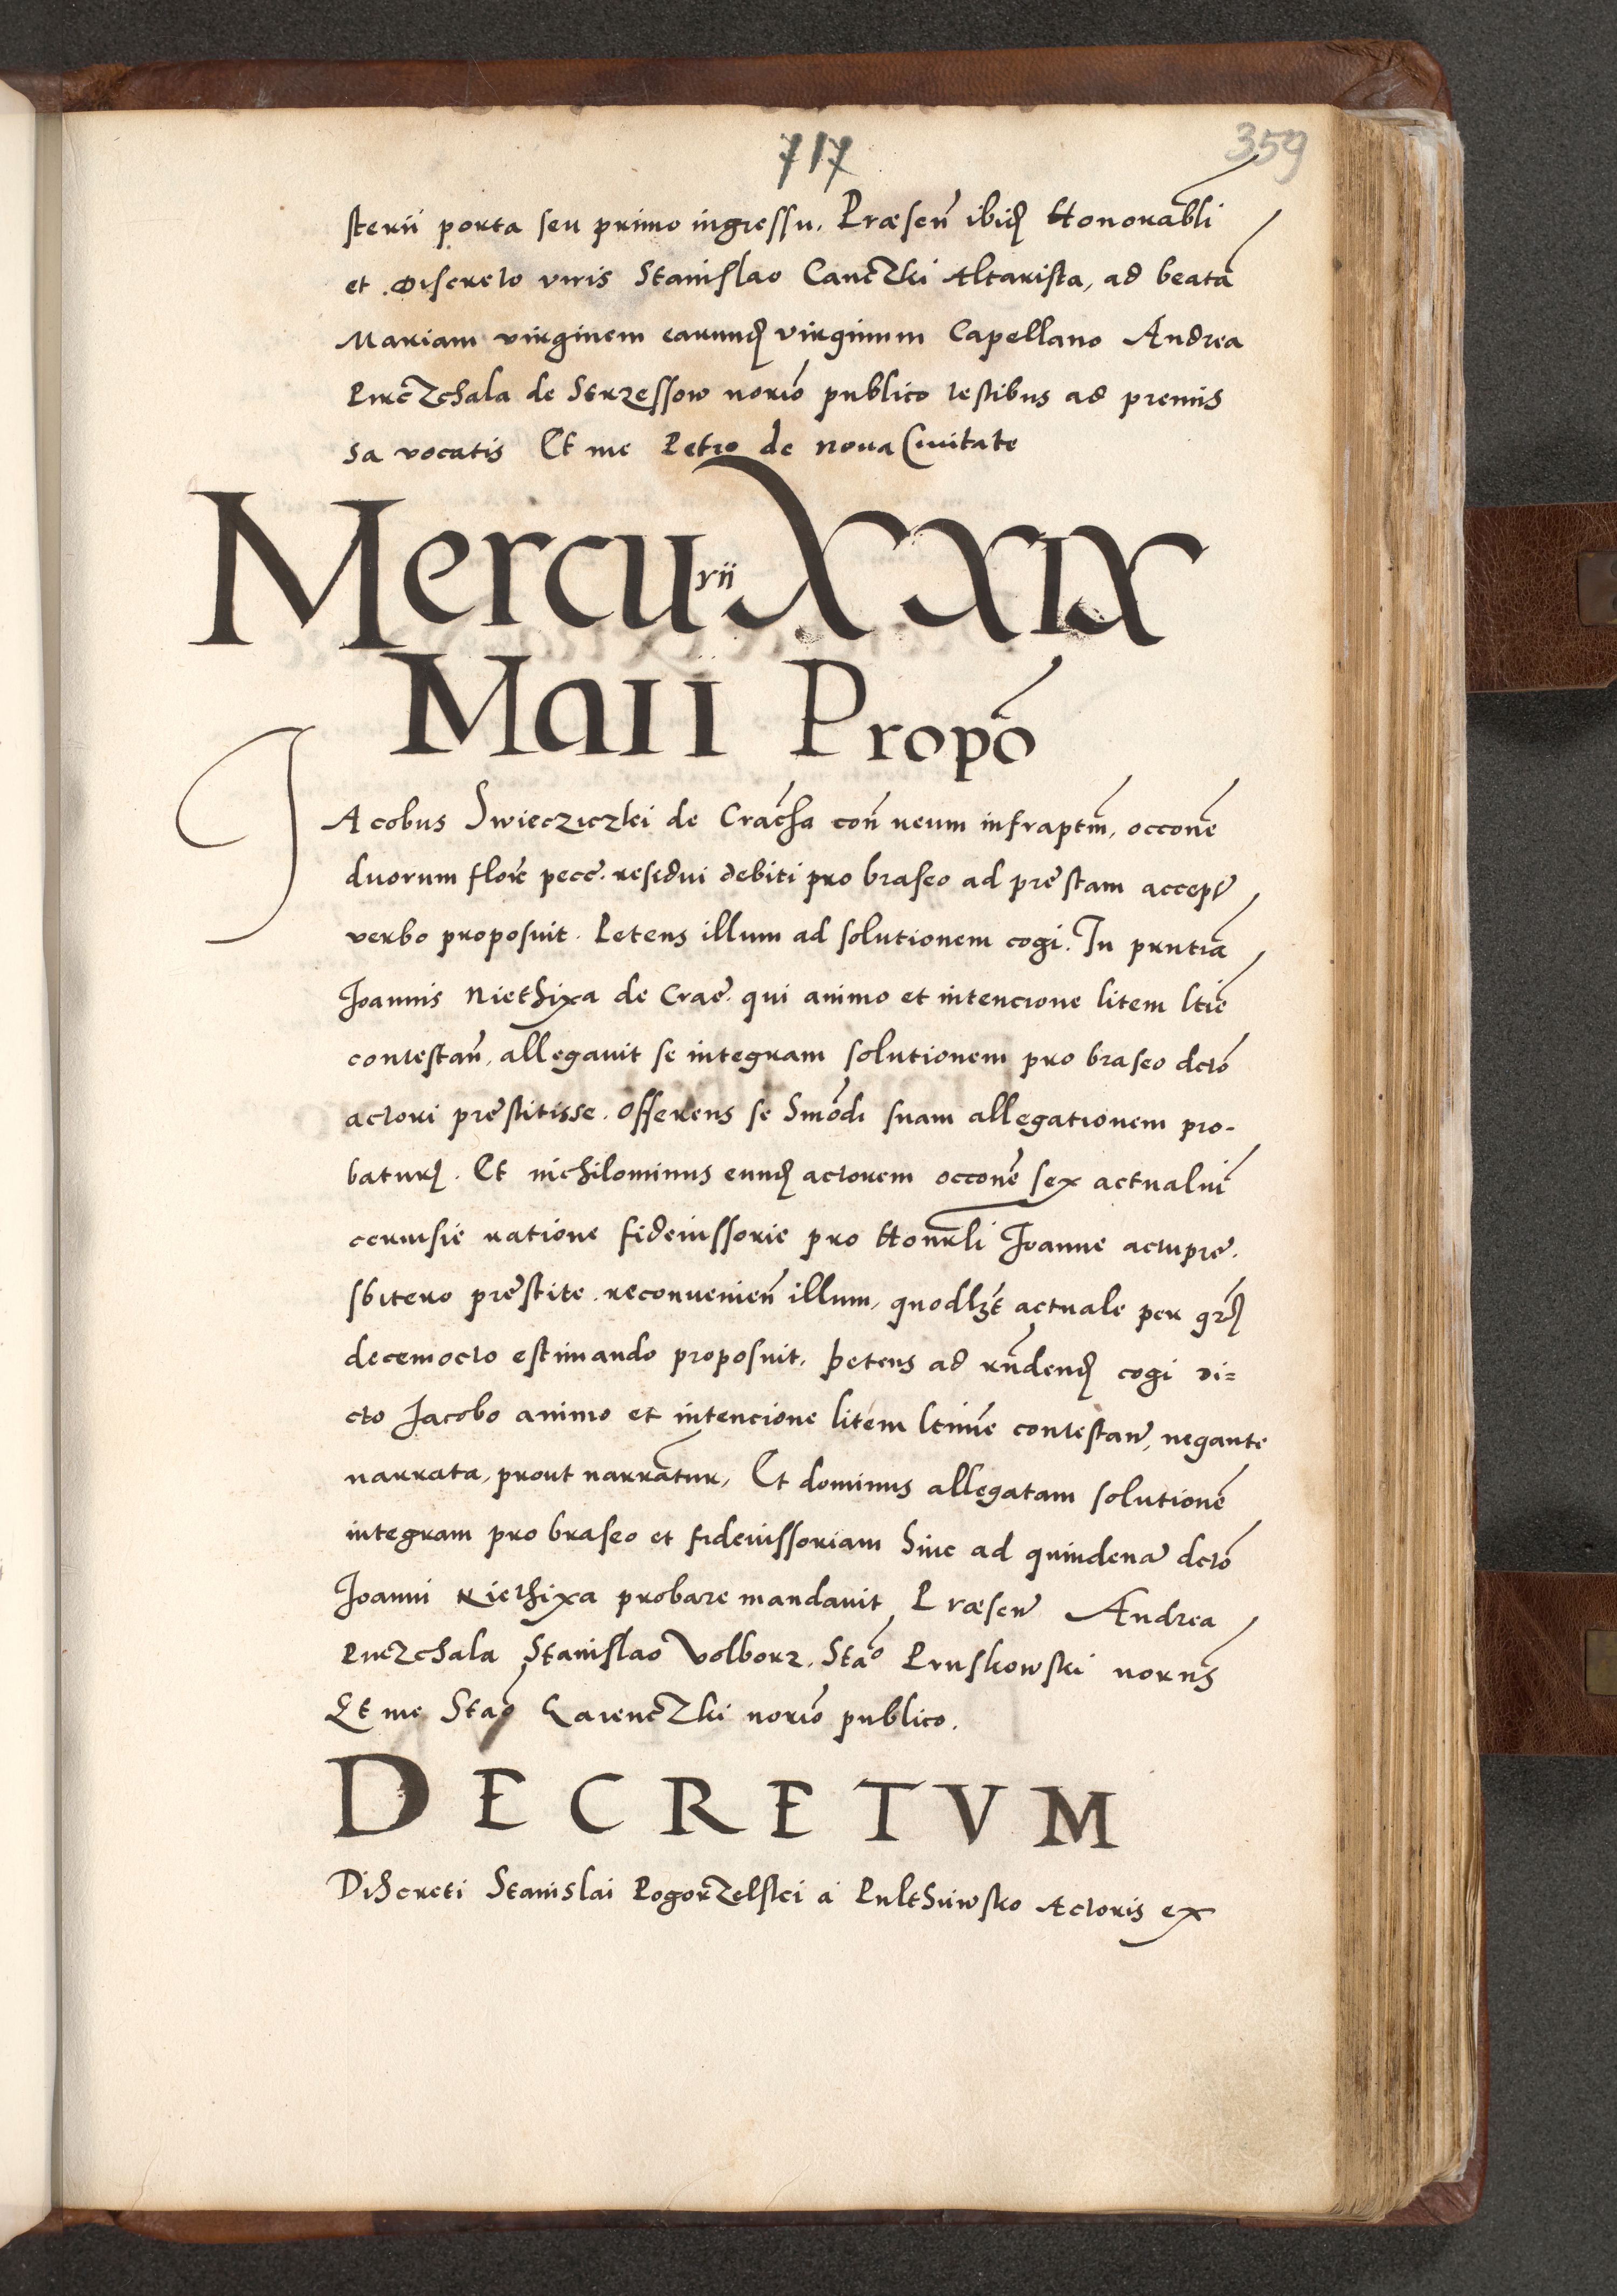 717
359
sterii porta seu primo ingressu. Præsen̄ ibid̨ Honorabli
et Discreto viris Stanislao Canczki Altarista, ad beatā
Mariam virginem earund̨ virginum Capellano Andrea
de Strzessow norīo publico testibus ad premis
sa vocatis Et me Petro de Noua Ciuitate
Mercurii XXIX
Maii Propō
Jacobus Swiecziczki de con̄ reum infraptm̄, occonē
duorum floren̄ pecē. residui debiti pro braseo ad prēstam accept̄
verbo proposuit. Petens illum ad solutionem cogi. In prntiā
Joannis Niethixa de Crac̄. qui animo et intencione litem ltiē
contestan̄, allegauit se integram solutionem pro braseo dctō
actori prēstitisse. Offerens se hmōdi suam allegationem pro-
batur̨. Et nichilominus eund̨ actorem occonē sex actualiū
ceruisie ratione fideiussorie pro Honrli Joanne
sbitero prēstite reconuenien̄ illum, quodlzt̄ actuale per gr̨
decemocto estimando proposuit, petens ad rn̄dend̨ cogi di=
cto Jacobo animo et intencione litem contestan̄, negante
narrata, prout narrāntur, Et dominus allegatam solutionē
integram pro braseo et fideiussoriam hinc ad quindenā dctō
Joanni Niethixa probare mandauit Præsen̄ Andrea
Stanislao Volborz. Stāo Pruskowski norys̄
Et me Stāo norīo publico.
DECRETVM
Discreti Stanislai Pogorzelski a Actoris ex